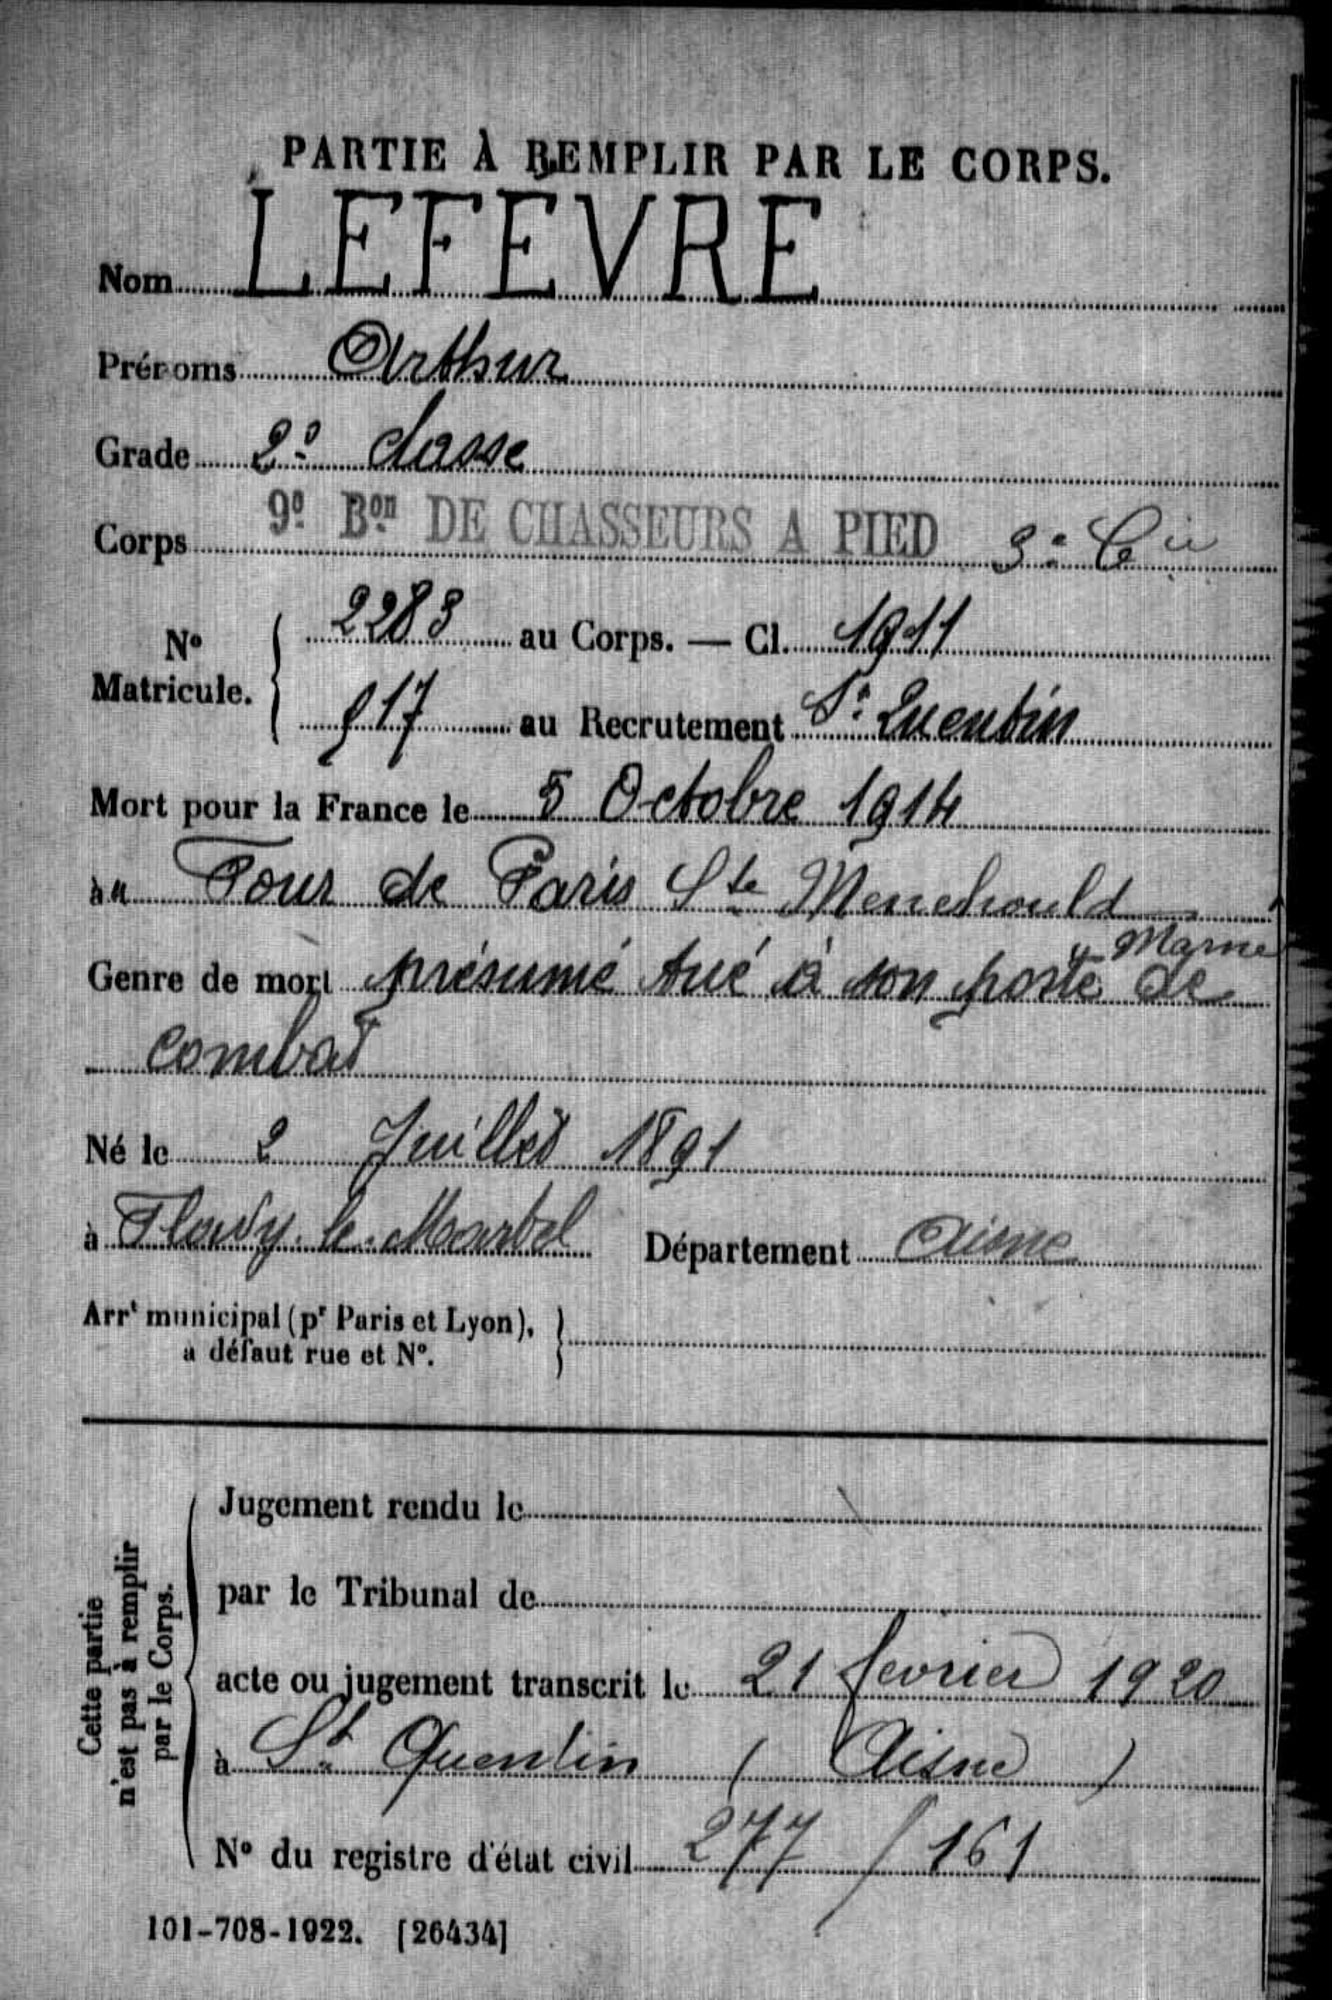 PARTIE À REMPLIR PAR LE CORPS.
Nom LEFEVRE
Prénoms Arthur
Grade 2e classe
Corps 9e Bon DE CHASSEURS A PIED 3e Cie
No Matricule. 2283 au Corps. — Cl. 1911
917 au Recrutement St Quentin
Mort pour la France le 5 Octobre 1914
à u Four de Paris Ste Menehould
Marne
Genre de mort présumé tué à son poste de
combat
Né le 2 Juillet 1891
à Flavy-le-Martel Département Aisne
Arrt municipal (pr Paris et Lyon),
à défaut rue et No.
Cette partie
n'est pas à remplir
par le Corps.
Jugement rendu le
par le Tribunal de
acte ou jugement transcrit le 21 fevrier 1920
à St Quentin (Aisne)
No du registre d'état civil 277 / 161
101-708-1922. [26434]